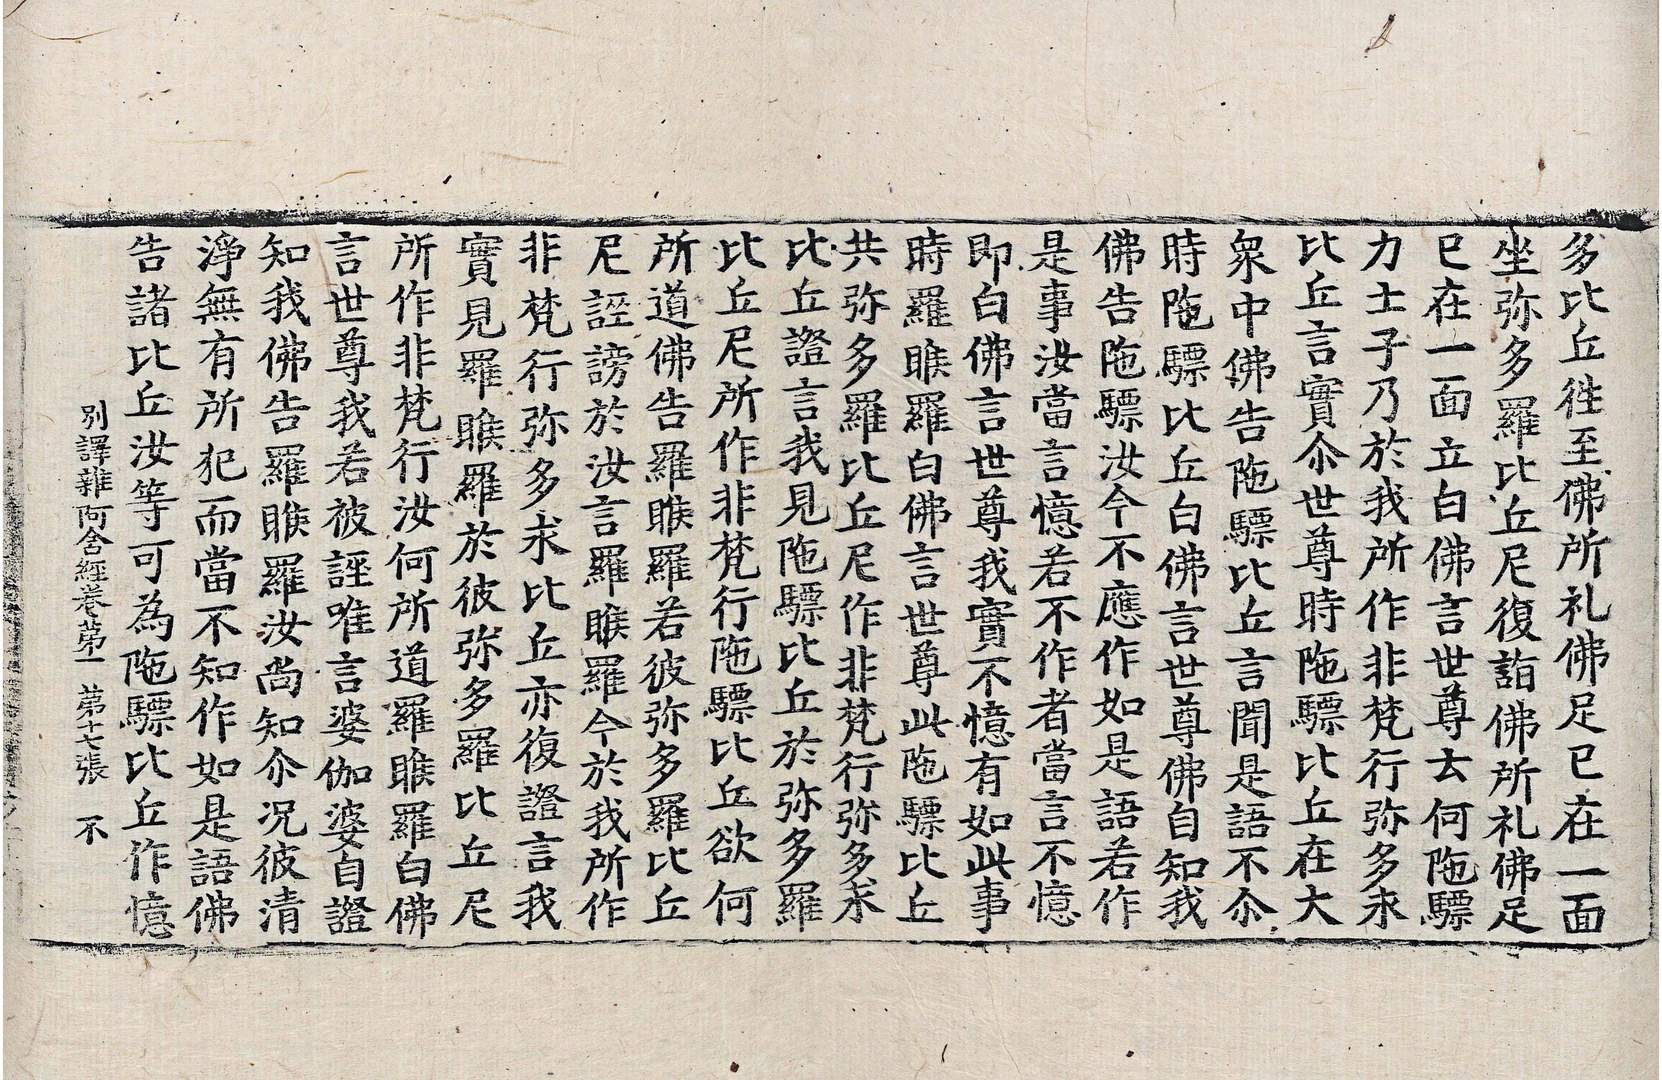 多比丘徃至佛所礼佛足已在一面
坐弥多羅比丘尼復詣佛所礼佛足
已在一面立白佛言世尊云何陁驃
力士子乃於我所作非梵行弥多求
比丘言實尒世尊時陁驃比丘在大
衆中佛告陁驃比丘言聞是語不尒
時陁驃比丘白佛言世尊佛自知我
佛告陁驃汝今不應作如是語若作
是事汝當言憶若不作者當言不憶
即白佛言世尊我實不憶有如此事
時羅睺羅白佛言世尊此陁驃比丘
共弥多羅比丘尼作非梵行弥多求
比丘證言我見陁驃比丘於弥多羅
比丘尼所作非梵行陁驃比丘欲何
所道佛告羅睺羅若彼弥多羅比丘
尼誣謗於汝言羅睺羅今於我所作
非梵行弥多求比丘亦復證言我
實見羅睺羅於彼弥多羅比丘尼
所作非梵行汝何所道羅睺羅白佛
言世尊我若被誣唯言婆伽婆自證
知我佛告羅睺羅汝尚知尒况彼清
淨無有所犯而當不知作如是語佛
告諸比丘汝等可為陁驃比丘作憶
别譯雜阿含經卷苐一 苐十七張 不